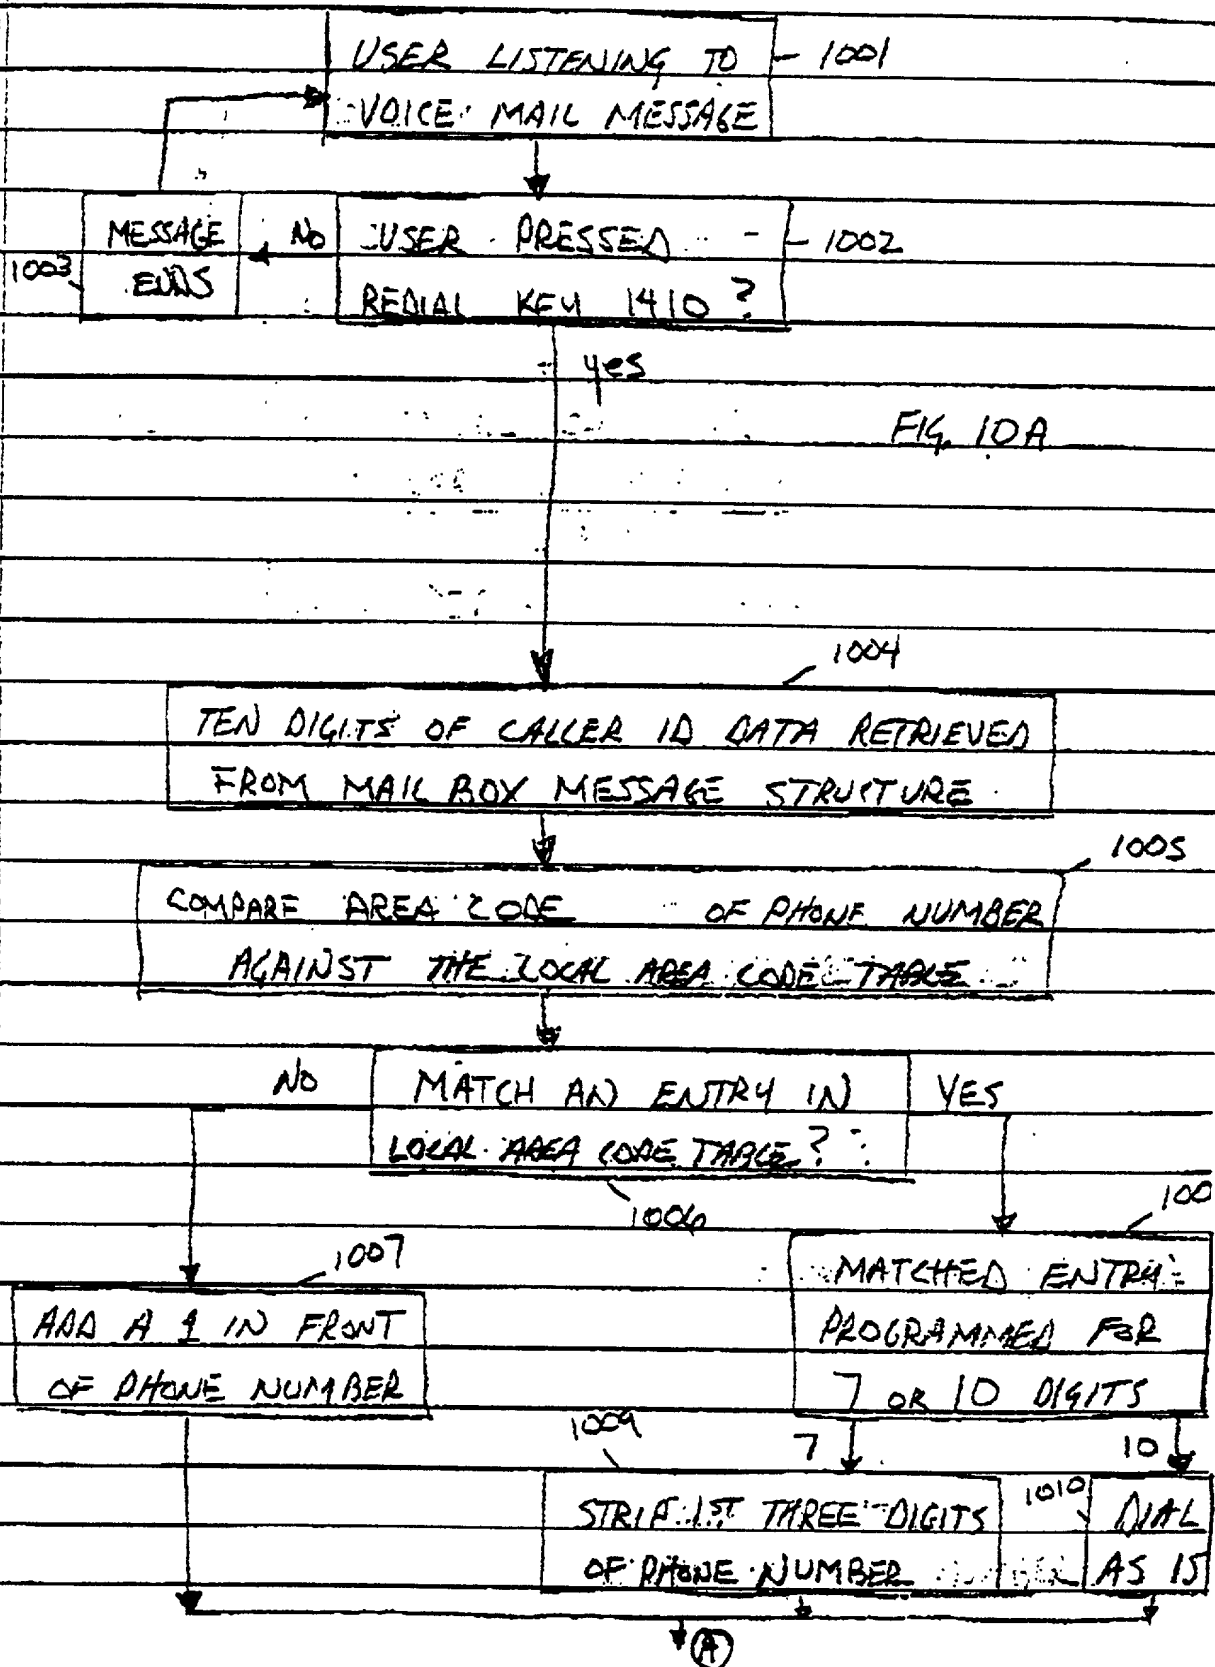 USER LISTENING TO
VOICE MAIL MESSAGE
1001
MESSAGE
ENDS
1003
NO
USER PRESSED
REDIAL KEY 1410 ?
1002
yes
FIG. 10A
1004
TEN DIGITS OF CALLER ID DATA RETRIEVED
FROM MAIL BOX MESSAGE STRUCTURE
1005
COMPARE AREA CODE OF PHONE NUMBER
AGAINST THE LOCAL AREA CODE TABLE
NO
MATCH AN ENTRY IN
LOCAL AREA CODE TABLE ?
YES
1006
100
1007
ADD A 1 IN FRONT
OF PHONE NUMBER
MATCHED ENTRY
PROGRAMMED FOR
7 OR 10 DIGITS
1009
7
10
STRIP 1ST THREE DIGITS
OF PHONE NUMBER
1010
DIAL
AS IS
A